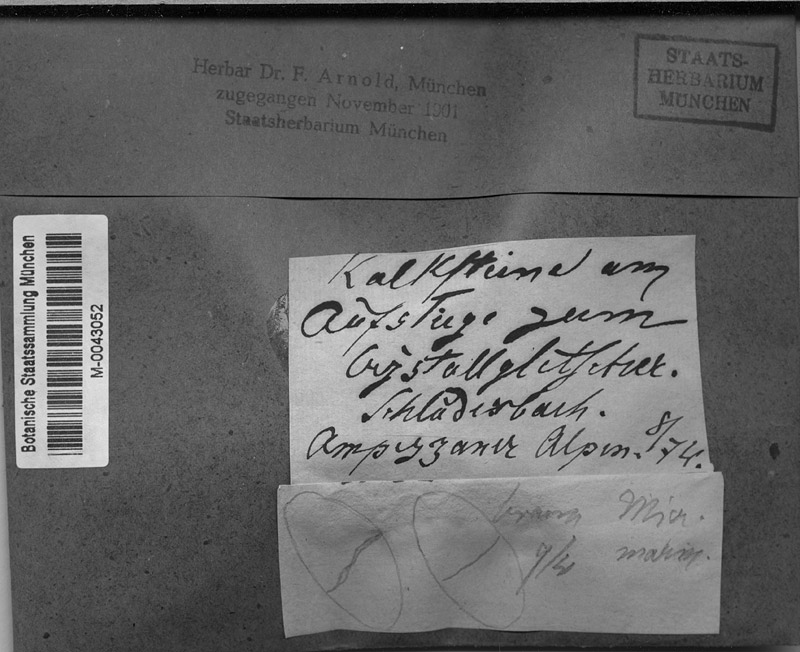 Herbar Dr. F. Arnold, München
zugegangen November 1901
Staatsherbarium München
STAATS-
HERBARIUM
MÜNCHEN
Botanische Staatssammlung München
M-0043052
Kalksteine am
Aufstiege zum
Crystallgletscher.
Schluderbach.
Ampezzaner Alpen. 8/74.